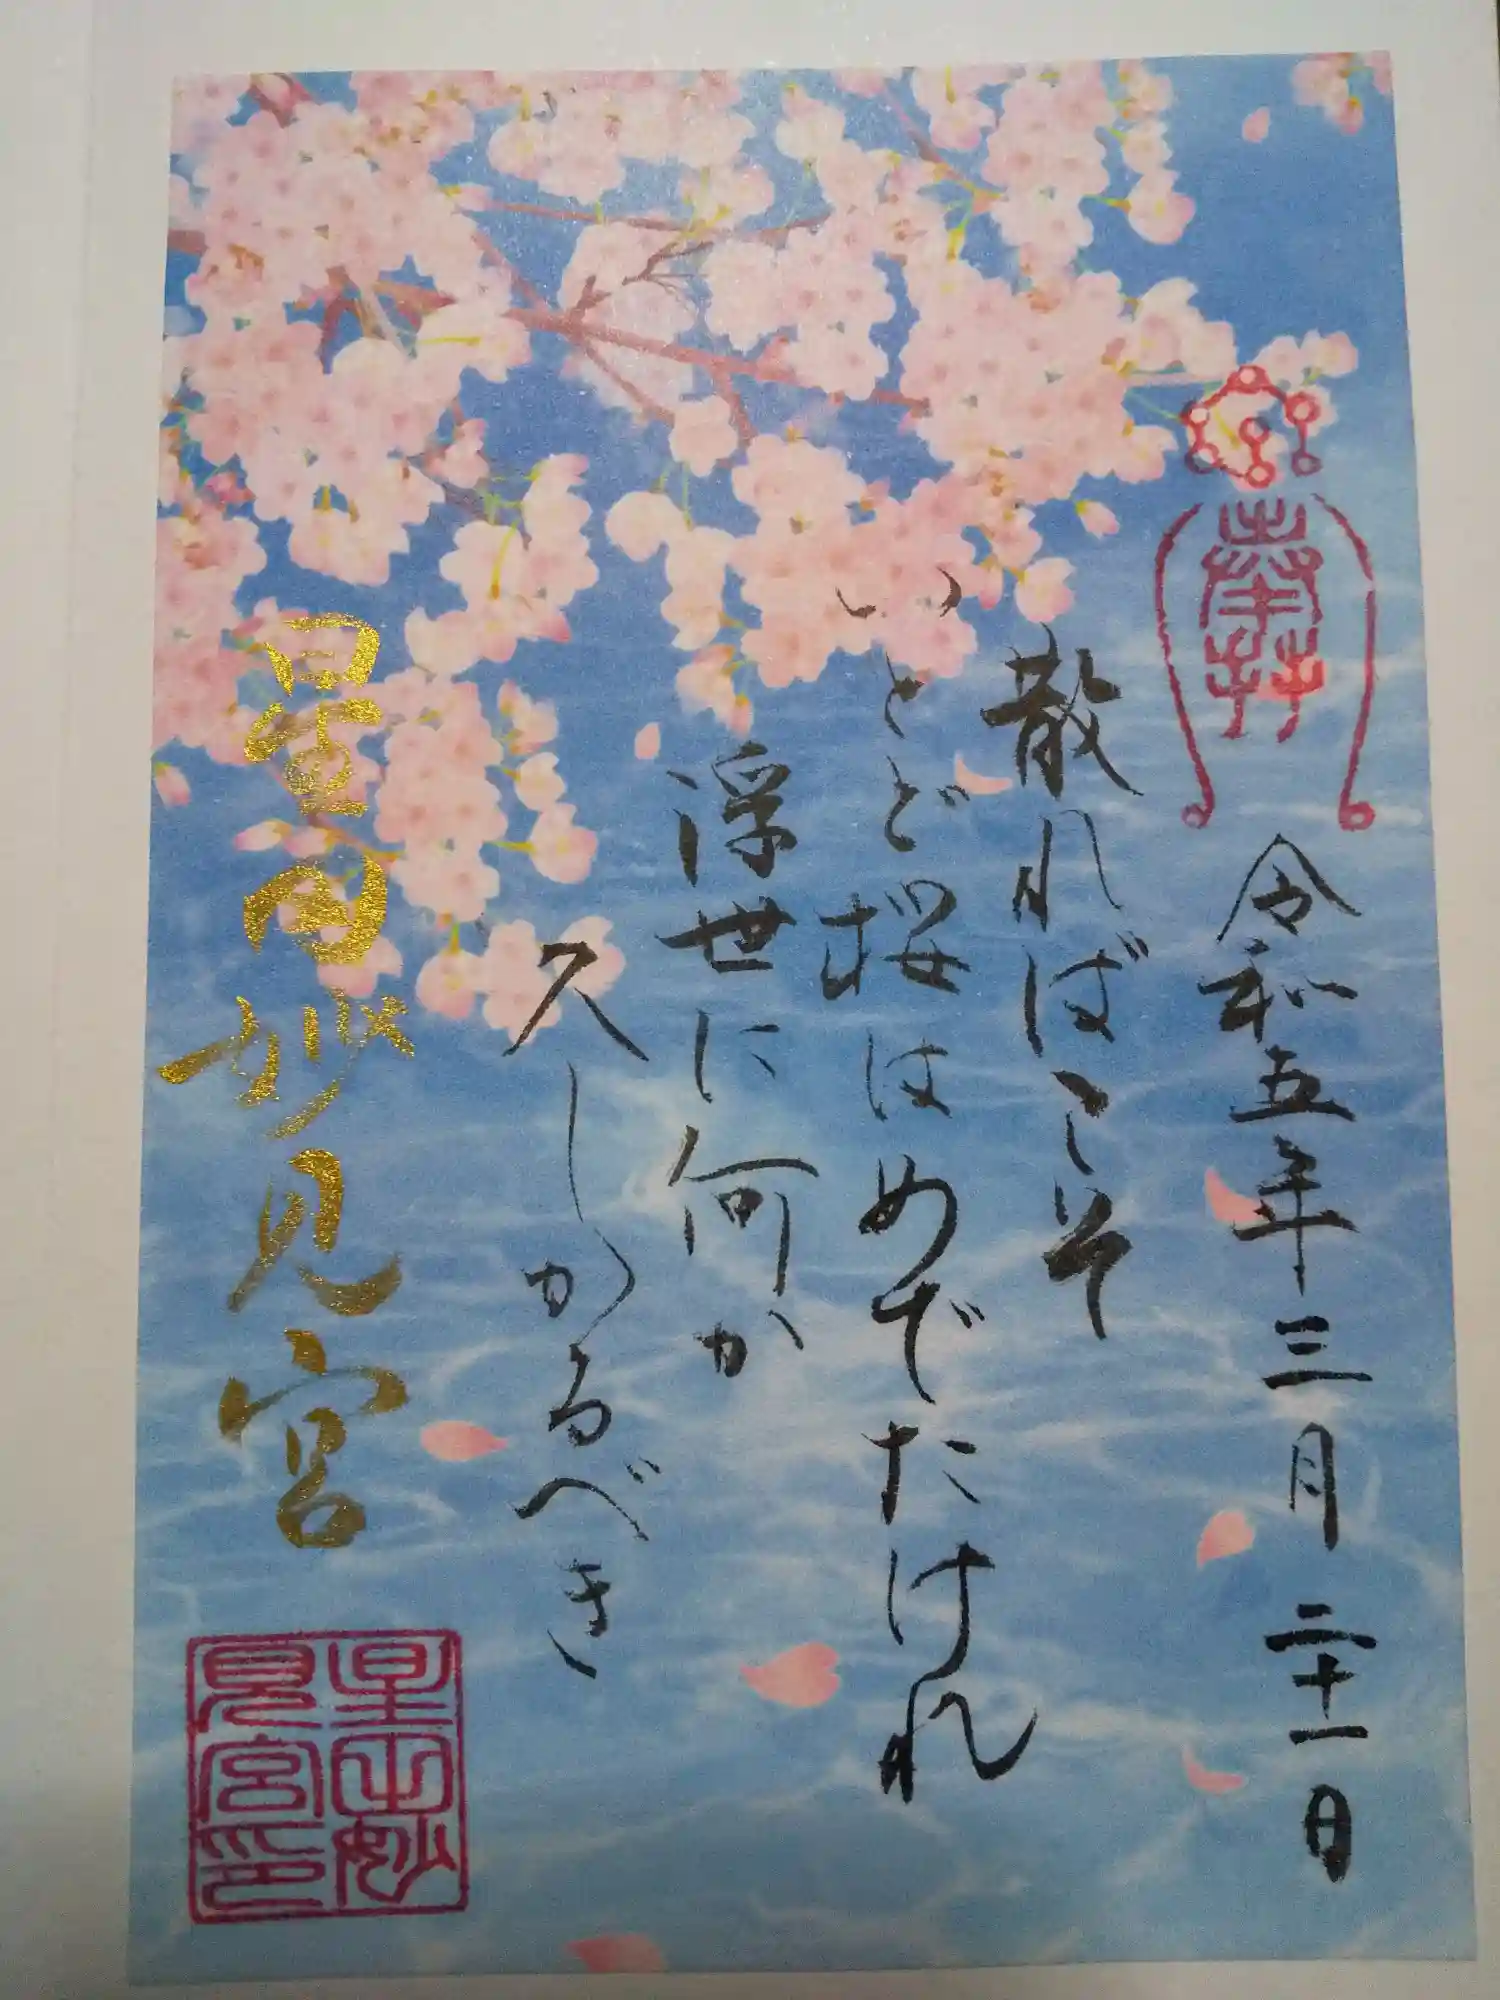 奉拝
令和五年三月二十一日
散ればこそ
いとど桜はめでたけれ
浮世に何か
久しかるべき
星田妙見宮
星田妙
見宮印